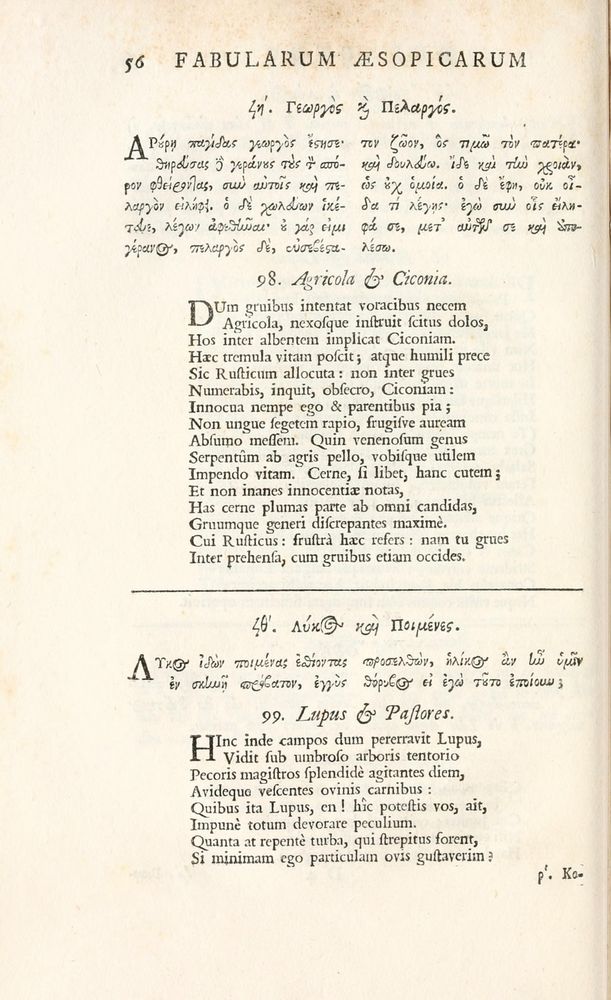 56 FABULARUM ÆSOPICARUM
ϟηʹ. Γεωργὸς καὶ Πελαργός.
ΑΡούρῃ παγίδας γεωργὸς ἔςησε·
θηρεύσας δὲ γεράνους τοὺς τ̀ σπό-
ρον φθείροντας, σὺν αὐτοῖς καὶ πε-
λαργὸν εἴληφε. ὁ δὲ χωλεύων ἱκέ-
τευε, λέγων ἀφεθῆναι· οὐ γάρ εἰμι
γέρανος, πελαργὸς δὲ, εὐσεβέςα-
τον ζῶον, ὃς τιμῶ τὸν πατέρα
καὶ δουλεύω. ἴδε καὶ τὴν χροιὰν,
ὡς οὐχ ὁμοία. ὁ δὲ ἔφη, οὐκ οἶ-
δα τί λέγῃς· ἐγὼ σὺν οἷς εἴλη-
φά σε, μετ᾽ αὐτῶν σε καὶ ἀπο-
λέσω.
98. Agricola & Ciconia.
DUm gruibus intentat voracibus necem
Agricola, nexoſque inſtruit ſcitus dolos,
Hos inter albentem implicat Ciconiam.
Hæc tremula vitam poſcit; atque humili prece
Sic Ruſticum allocuta: non inter grues
Numerabis, inquit, obſecro, Ciconiam:
Innocua nempe ego & parentibus pia;
Non ungue ſegetem rapio, frugiſve auream
Abſumo meſſem. Quin venenoſum genus
Serpentûm ab agris pello, vobiſque utilem
Impendo vitam. Cerne, ſi libet, hanc cutem;
Et non inanes innocentiæ notas,
Has cerne plumas parte ab omni candidas,
Gruumque generi diſcrepantes maximè.
Cui Ruſticus: fruſtrà hæc refers: nam tu grues
Inter prehenſa, cum gruibus etiam occides.
ϟθʹ. Λύκος καὶ Ποιμένες.
ΛΥκος ἰδὼν ποιμένας ἐσθίοντας
ἐν σκηνῇ πρόβατον, ἐγγὺς
προσελθὼν, ἡλίκος ἂν ἦν ὑμῖν
θόρυβος εἰ ἐγὼ τοῦτο ἐποίουν;
99. Lupus & Paſtores.
HInc inde campos dum pererravit Lupus,
Vidit ſub umbroſo arboris tentorio
Pecoris magiſtros ſplendidè agitantes diem,
Avideque veſcentes ovinis carnibus:
Quibus ita Lupus, en! hîc poteſtis vos, ait,
Impunè totum devorare peculium.
Quanta at repentè turba, qui ſtrepitus forent,
Si minimam ego particulam ovis guſtaverim?
ρʹ. Κο-